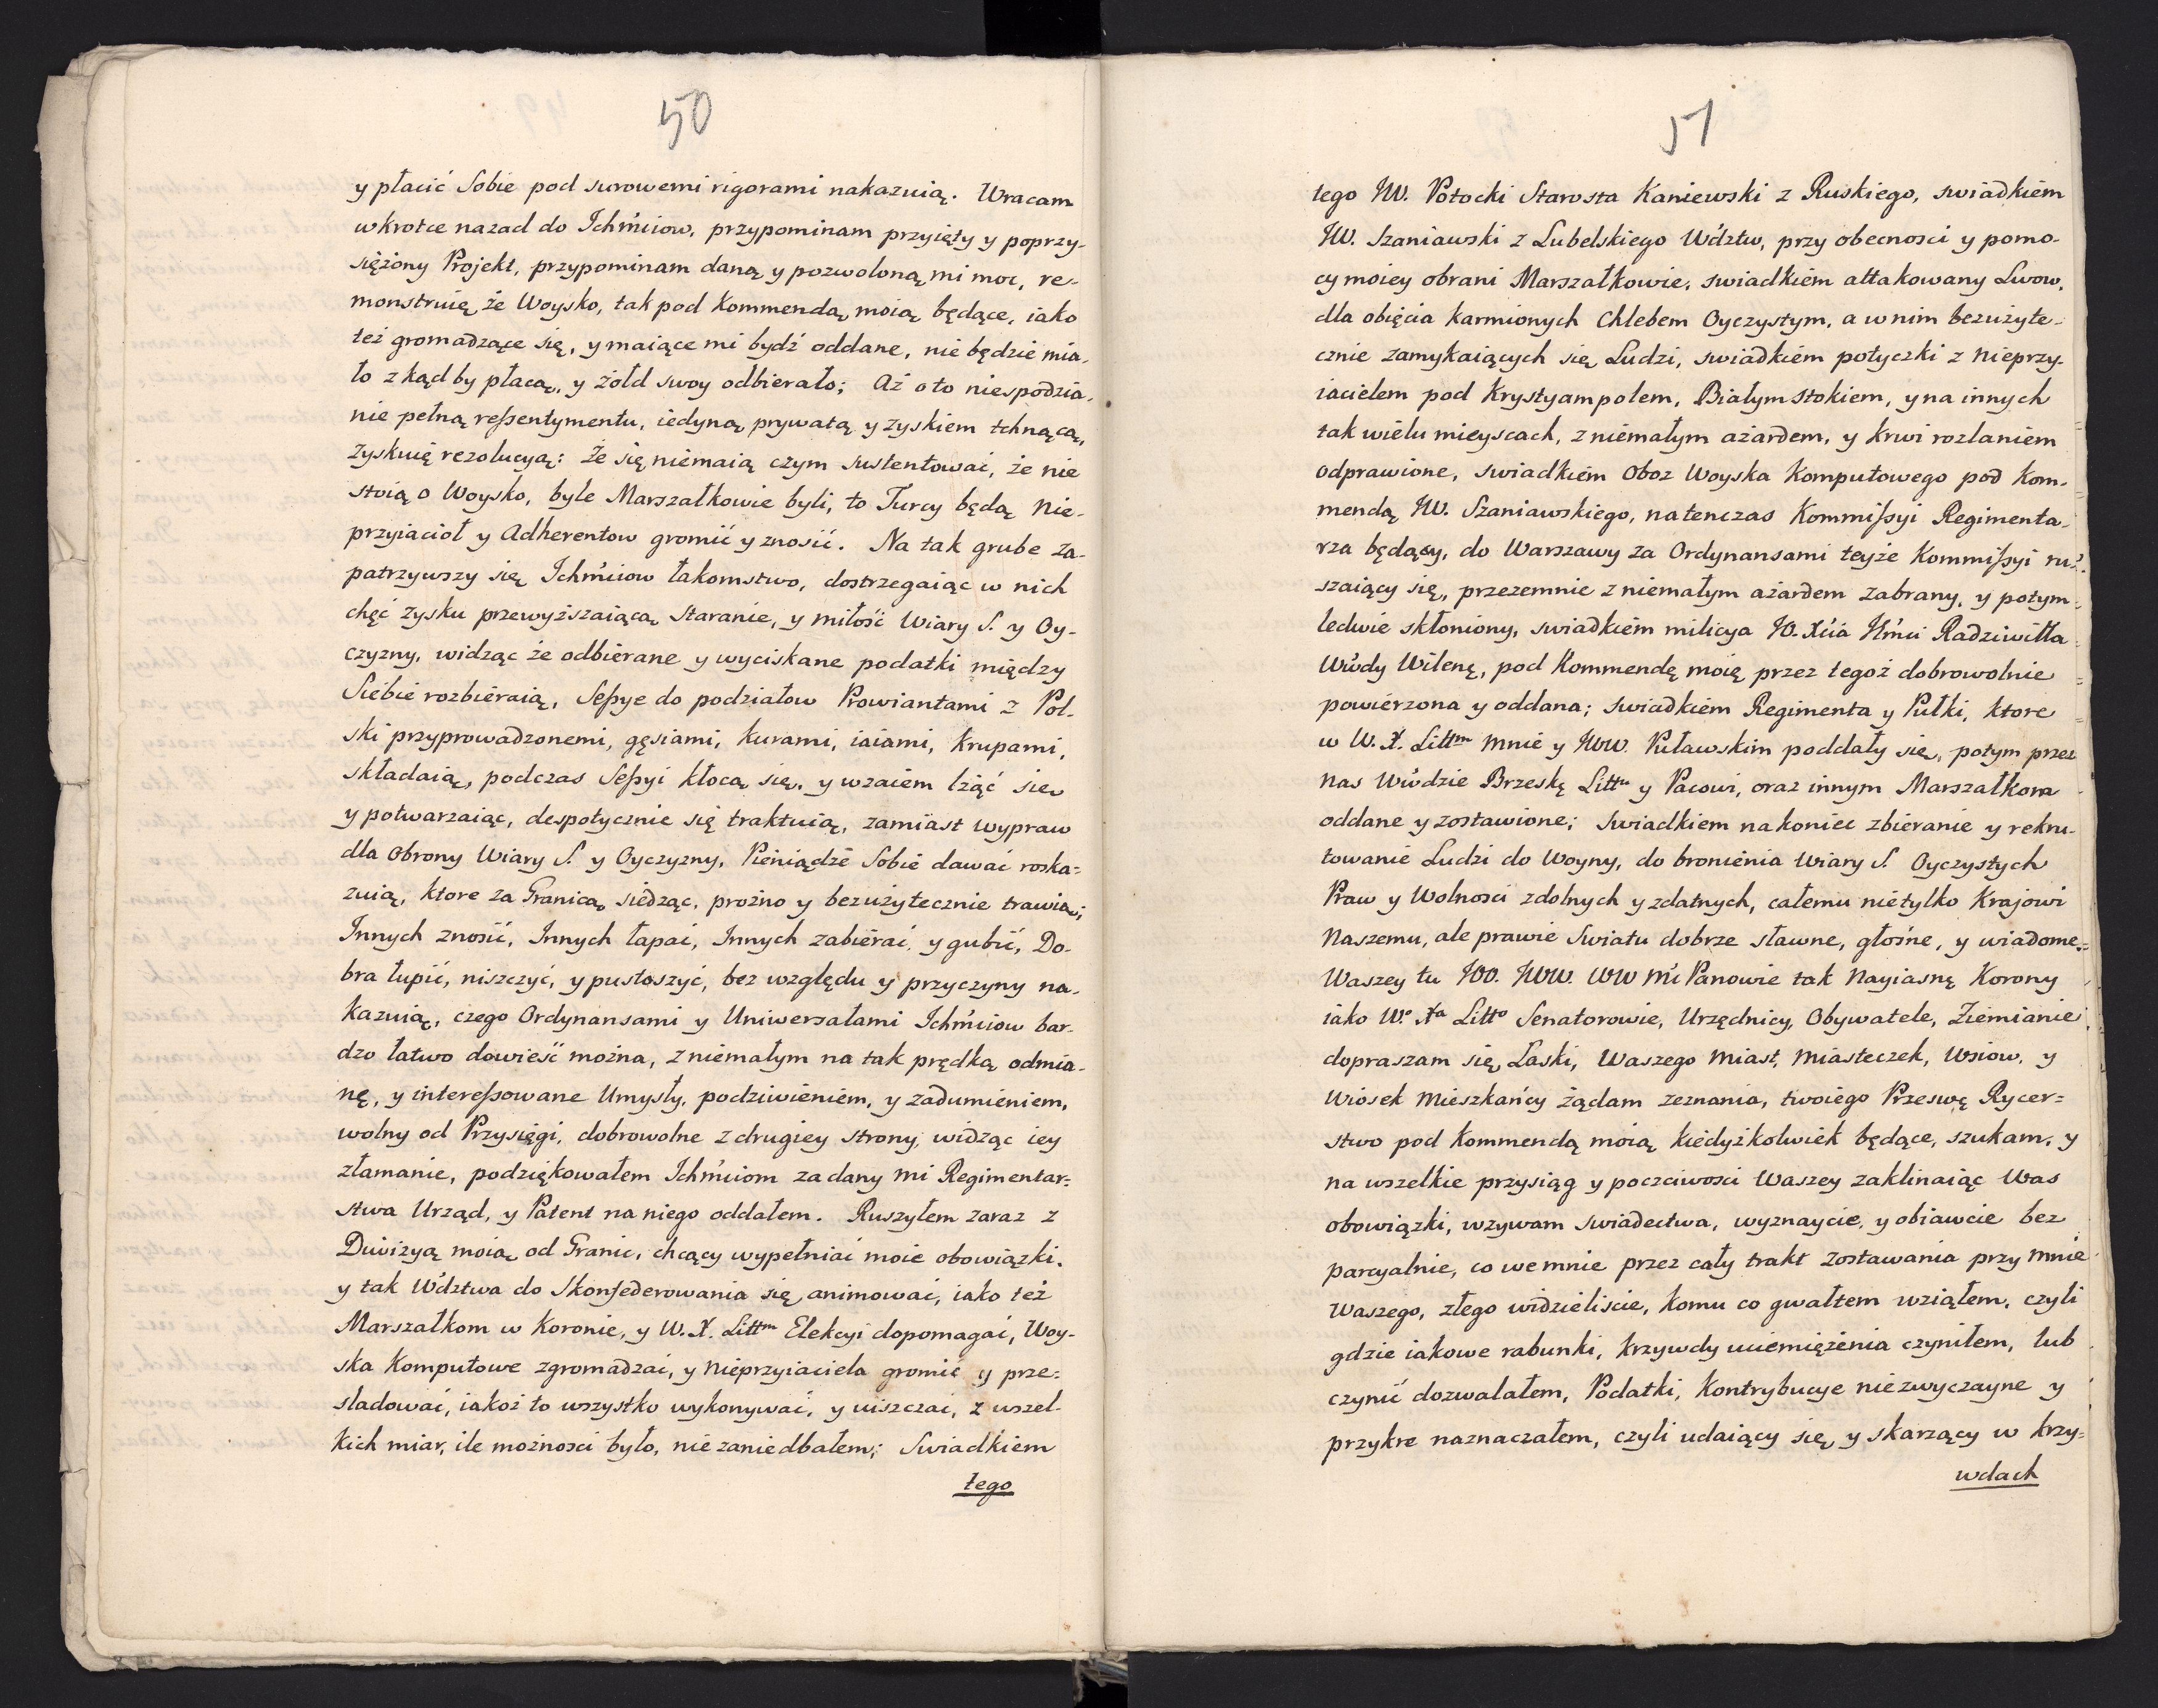 50
y płacić Sobie pod surowemi rigorami nakazuią. Wracam
wkrotce nazad do Ichm̃ciow, przypominam przyięty y poprzy-
siężony Projekt, przypominam daną y pozwoloną mi moc, re-
monstruię że Woysko, tak pod Kommendą moią będące, iako
też gromadzące się, y maiące mi bydź oddane, nie będzie mia-
ło zkąd by płacą, y żołd swoy odbierało; Aż oto niespodzia-
nie pełną ressentymentu, iedyną prywatą y zyskiem tchnącą,
zyskuię rezolucyą: że się niemaią czym sustentować, że nie
stoią o Woysko, byle Marszałkowie byli, to Turcy będą Nie-
przyiacioł y Adherentow gromić y znosić. Na tak grube za-
patrzywszy się Ichm̃ciow łakomstwo, dostrzegaiąc w nich
chęć zysku przewyższaiącą staranie, y miłość Wiary S. y Oy-
czyzny, widząc że odbierane y wyciskane podatki między
Siebie rozbieraią, Sessye do podziałow Prowiantami z Pol-
ski przyprowadzonemi, gęsiami, kurami, iaiami, krupami,
składaią, podczas Sessyi kłocą się, y wzaiem lżąć się
y potwarzaiąc, despotycznie się traktuią, zamiast wypraw
dla Obrony Wiary S. y Oyczyzny, Pieniądze Sobie dawać roska=
zuią, ktore za Granicą siedząc, prożno y bezużytecznie trawią;
Innych znosić, Innych łapać, Innych zabierać y gubić, Do-
bra łupić, niszczyć, y pustoszyć, bez względu y przyczyny na-
kazuią, czego Ordynansami y Uniwersałami Ichm̃ciow bar-
dzo łatwo dowieść można, z niemałym na tak prędką odmia-
nę, y interessowane Umysły, podziwieniem, y zadumieniem,
wolny od Przysięgi, dobrowolne z drugiey strony, widząc iey
złamanie, podziękowałem Ichm̃ciom za dany mi Regimentar=
stwa Urząd, y Patent na niego oddałem. Ruszyłem zaraz z
Dywizyą moią od Granic, chcący wypełniać moie obowiązki,
y tak Wdztwa do Skonfederowania się animować, iako też
Marszałkom w Koronie, y W. X. Littm Elekcyi dopomagać, Woy-
ska Komputowe zgromadzać, y Nieprzyiaciela gromić y prze=
śladować, iakoż to wszystko wykonywać, y uiszczać, z wszel-
kich miar, ile możności było, nie zaniedbałem; Swiadkiem
tego
51
tego JW. Potocki Starosta Kaniewski z Ruskiego, swiadkiem
JW. Szaniawski z Lubelskiego Wdztw, przy obecnosci y pomo-
cy moiey obrani Marszałkowie, swiadkiem attakowany Lwow,
dla obięcia karmionych chlebem Oyczystym, a w nim bezużyte-
cznie zamykaiących się Ludzi, swiadkiem potyczki z Nieprzy-
iacielem pod Krystyampolem, Białymstokiem, y na innych
tak wielu mieyscach, z niemałym ażardem, y krwi rozlaniem
odprawione, swiadkiem Oboz Woyska Komputowego pod Kom-
mendą JW. Szaniawskiego, natenczas Kommissyi Regimenta-
rza będący, do Warszawy za Ordynansami teyże Kommissyi ru-
szaiący się, przezemnie z niemałym ażardem zabrany, y potym
ledwie skłoniony, swiadkiem milicya JO. Xcia Jm̃ci Radziwiłła
Wwdy Wileńę, pod Kommendę moię przez tegoż dobrowolnie
powierzona y oddana; Swiadkiem Regimenta y Pułki, ktore
w W. X. Littm mnie y JWW. Pułaskim poddały się, potym przez
nas Wwodzie Brzeskę Littu y Pacowi, oraz innym Marszałkom
oddane y zostawione; Swiadkiem nakoniec zbieranie y rekru-
towanie Ludzi do Woyny, do bronienia Wiary S. Oyczystych
Praw y Wolnosci zdolnych y zdatnych, całemu nietylko Krajowi
Naszemu, ale prawie Swiatu dobrze sławne, głośne, y wiadome.
Waszey tu JOO. JWW. WW m̃ci Panowie tak Nayiasnę Korony
iako Wo Xa Litto Senatorowie, Urzędnicy, Obywatele, Ziemianie
dopraszam się Łaski, Waszego Miast, Miasteczek, Wsiow, y
Wiosek Mieszkańcy żądam zeznania, twoiego Przeswę Rycer=
stwo pod Kommendą moią kiedyżkolwiek będące, szukam, y
na wszelkie przysiąg y poczciwosci Waszey zaklinaiąc Was
obowiązki, wzywam swiadectwa, wyznaycie, y obiawcie bez
parcyalnie, co we mnie przez cały trakt zostawania przy mnie
Waszego, złego widzieliscie, komu co gwałtem wziąłem, czyli
gdzie iakowe rabunki, krzywdy uciemiężenia czyniłem, lub
czynić dozwalałem, Podatki, Kontrybucye niezwyczayne y
przykre naznaczałem, czyli udaiący się y skarzący w krzy=
wdach